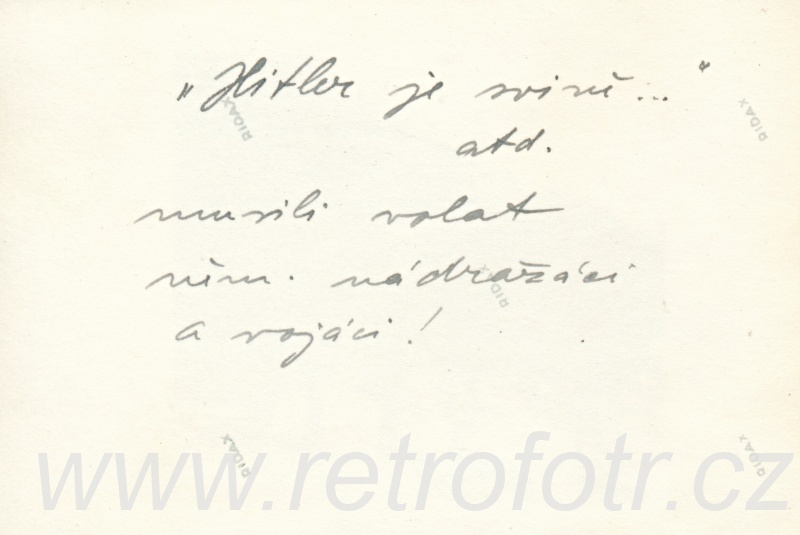 „Hitler je svině..."
atd.
musili volat
něm. nádražáci
a vojáci!
RIDAX
RIDAX
RIDAX
RIDAX
RIDAX
www.retrofotr.cz